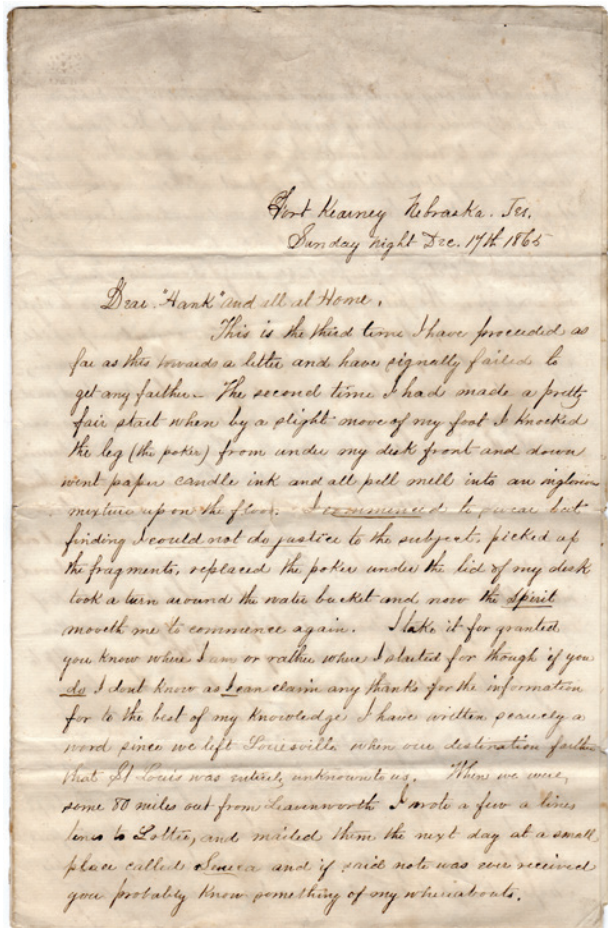 Fort Kearney Nebraska. Ter.
Sunday night Dec. 17th 1865
Dear "Hank" and all at Home,
This is the third time I have proceeded as
far as this towards a letter and have signally failed to
get any farther - The second time I had made a pretty
fair start when by a slight move of my foot I knocked
the leg (the poker) from under my desk front and down
went paper candle ink and all pell mell into an inglorious
mixture upon the floor. I commenced to swear but
finding I could not do justice to the subject, picked up
the fragments, replaced the poker under the lid of my desk
took a turn around the water bucket and now the spirit
moveth me to commence again. I take it for granted
you know where I am or rather where I started for though if you
do I dont know as I can claim any thanks for the information
for to the best of my knowledge I have written scarcely a
word since we left Louisville when our destination farther
that St Louis was entirely unknown to us. When we were
some 80 miles out from Leavenworth I wrote a few a lines
lines to Lottie, and mailed them the next day at a small
place called Seneca and if said note was ever received
you probably know something of my whereabouts.